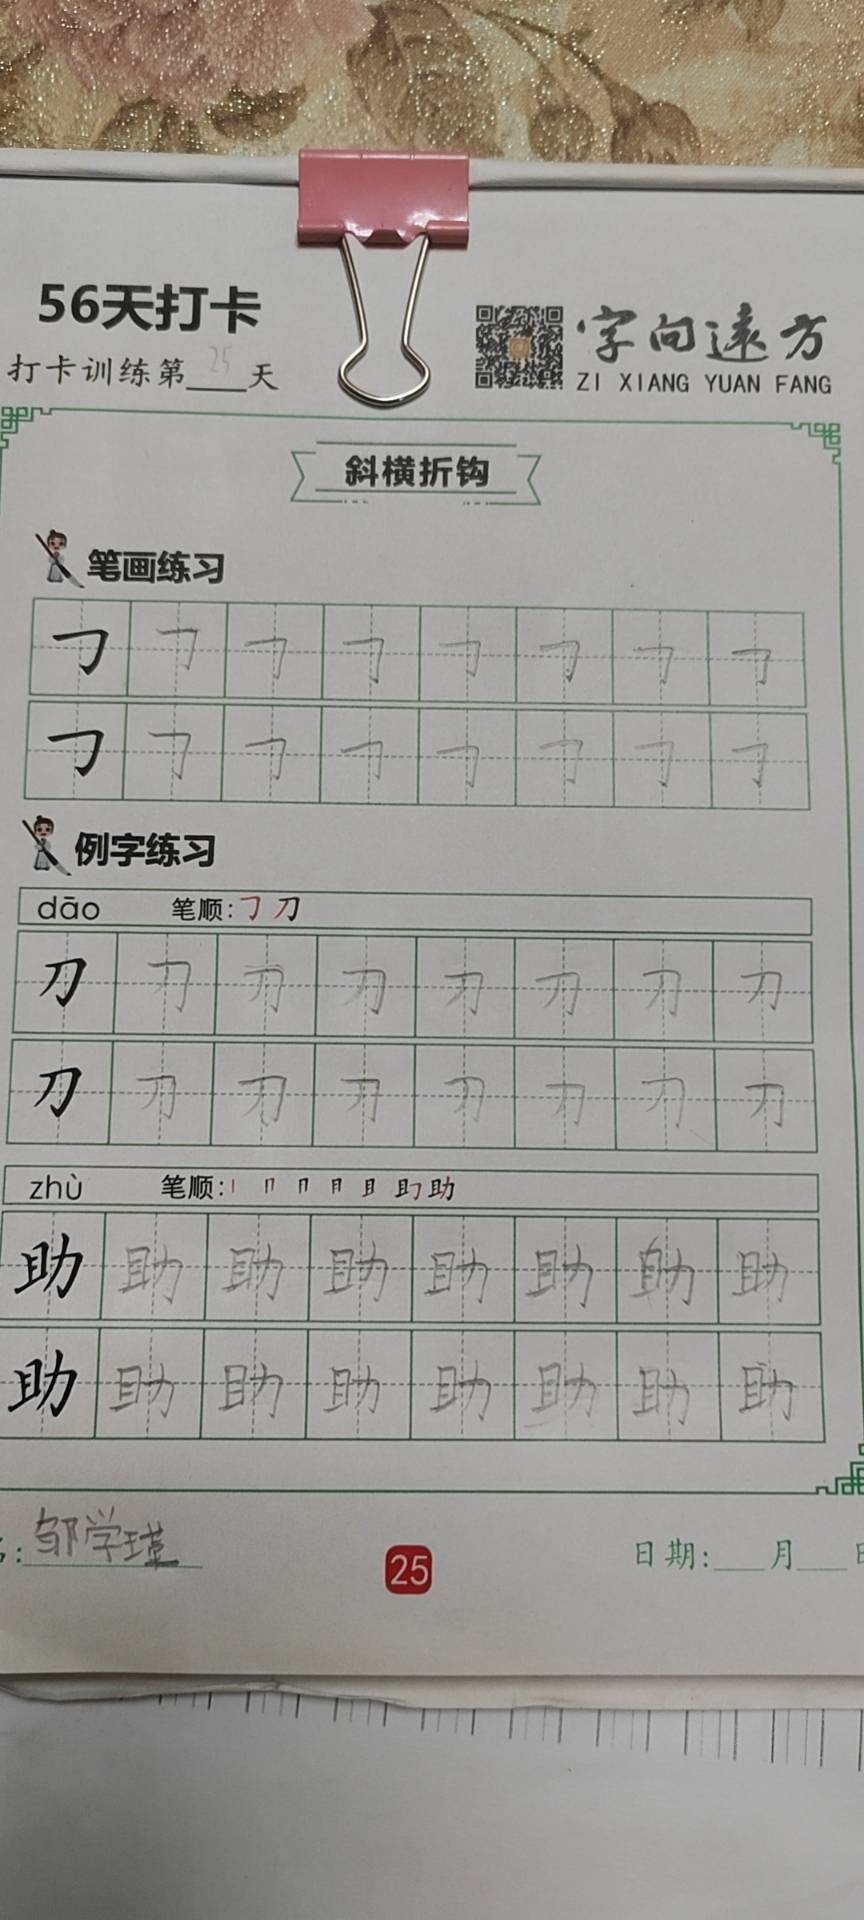 56天打卡
打卡训练第25天
字向远方
ZI XIANG YUAN FANG
斜横折钩
笔画练习
㇆ ㇆ ㇆ ㇆ ㇆ ㇆ ㇆ ㇆
㇆ ㇆ ㇆ ㇆ ㇆ ㇆ ㇆ ㇆
例字练习
dāo 笔顺:㇆ 刀
刀 刀 刀 刀 刀 刀 刀 刀
刀 刀 刀 刀 刀 刀 刀 刀
zhù 笔顺:丨 冂 冂 月 且 助
助 助 助 助 助 助 助 助
助 助 助 助 助 助 助 助
:邹学瑾
25
日期:___月___日